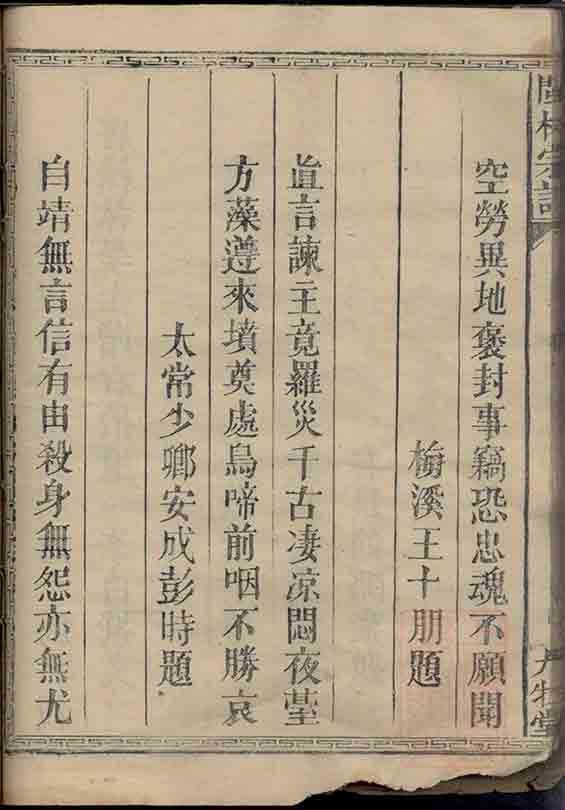 空勞異地褒封事竊恐忠魂不願聞
梅溪王十朋題
直言諫主竟羅災千古凄凉悶夜臺
方藻遵來墳奠處烏啼前咽不勝哀
太常少卿安成彭時題
自靖無言信有由殺身無怨亦無尤